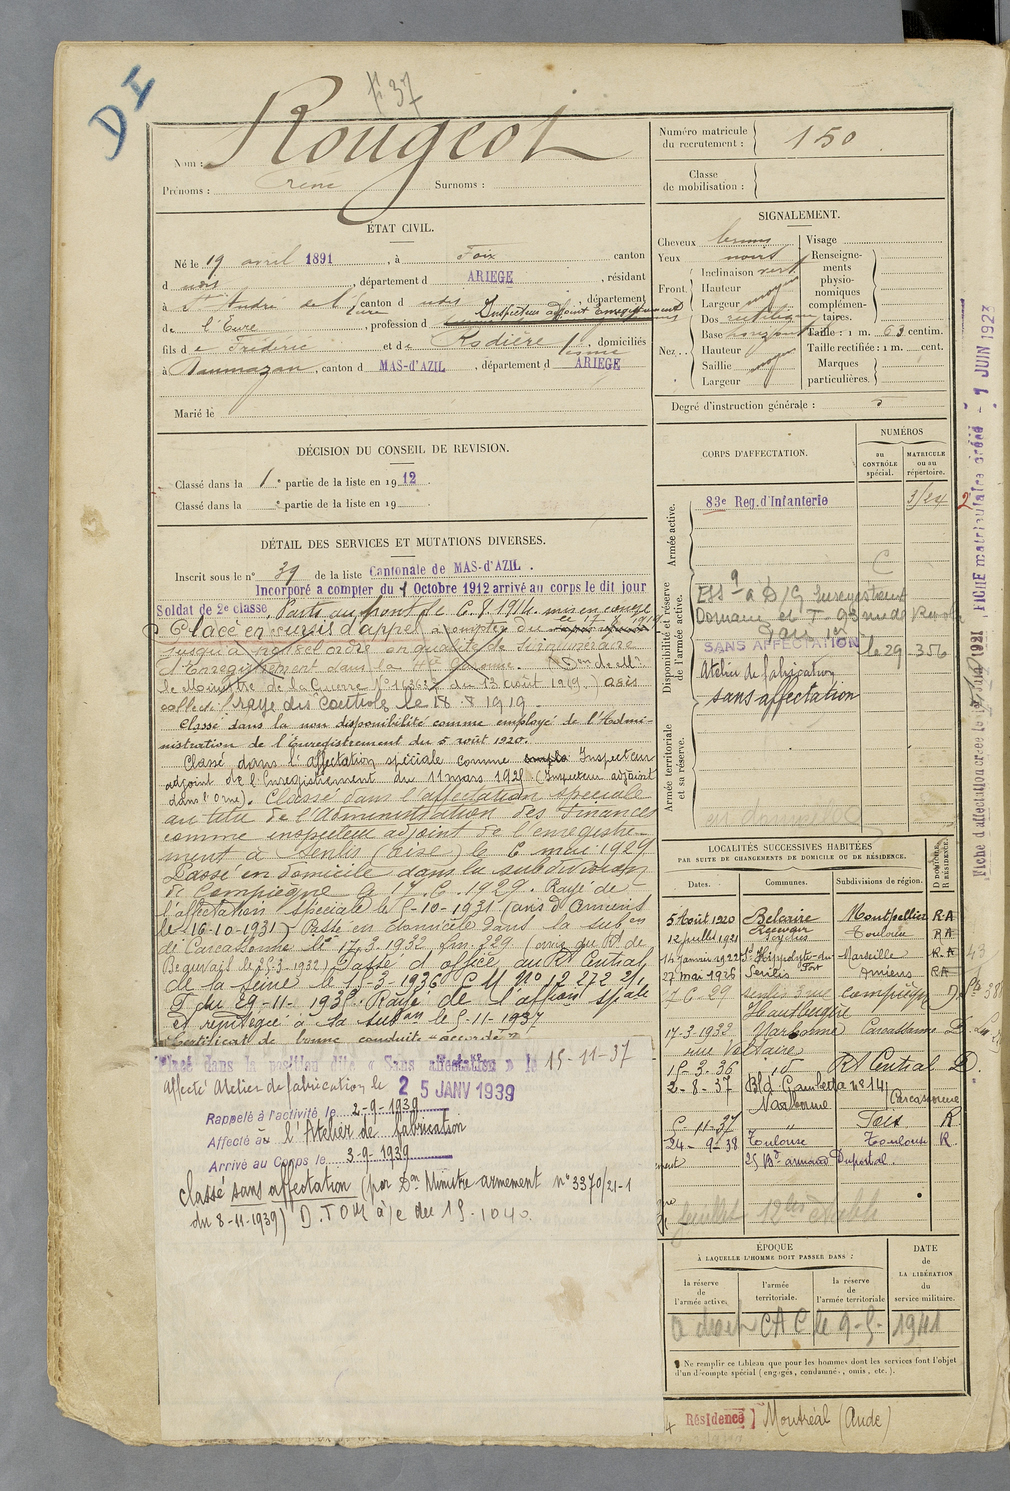 DI
F 37
Nom : Rougeot
Prénoms : rené Surnoms :
Numéro matricule du recrutement : 150
Classe de mobilisation :
ÉTAT CIVIL.
Né le 19 avril 1891, à Foix canton
d udit, département d ARIEGE, résidant
à St André de l'Eure canton d udit, département
de l'Eure, profession d Inspecteur adjoint Enregistrement
fils de Frédéric et de Rodière, domiciliés
à Daumazan, canton d MAS-d'AZIL, département d ARIEGE
Marié le
SIGNALEMENT.
Cheveux bruns
Yeux noirs
Front. Inclinaison vert
Hauteur moyen
Largeur
Nez... Dos rectiligne
Base horizont
Hauteur moyen
Saillie
Largeur
Visage
Renseignements physionomiques complémentaires.
Taille : 1 m. 63 centim.
Taille rectifiée : 1 m. cent.
Marques particulières.
Degré d'instruction générale : 5
DÉCISION DU CONSEIL DE REVISION.
Classé dans la 1e partie de la liste en 1912.
Classé dans la e partie de la liste en 19
DÉTAIL DES SERVICES ET MUTATIONS DIVERSES.
Inscrit sous le n° 39 de la liste Cantonale de MAS-d'AZIL.
Incorporé a compter du 1 Octobre 1912 arrivé au corps le dit jour
Soldat de 2e classe. Parti au front le 6.8.1914. mis en congé
Placé en sursis d'appel à compter du
jusqu'à nouvel ordre en qualité de surnuméraire
d'Enregistrement dans la
le Ministre de la Guerre N° 16363 du 13 août 1919.)
collectif rayé des Contrôles le 18 8 1919.
Classé dans la non disponibilité comme employé de l'Admi-
nistration de l'Enregistrement du 5 août 1920.
Classé dans l'affectation spéciale comme Inspecteur
adjoint de l'Enregistrement du 11 mars 1925 (Inspecteur adjoint
dans l'Orne). Classé dans l'affectation spéciale
au titre de l'Administration des Finances
comme inspecteur adjoint de l'enregistre-
ment à Senlis (Oise) le 6 mai 1929
Passé en domicile dans la subdivision
de Compiègne le 17.6.1929. Rayé de
l'affectation spéciale le 5-10-1931 (avis d'Amiens
le 16-10-1931) Passé en domicile dans la subon
de Carcassonne le 17-3-1932 (avis du Rt de
Beauvais le 25-3-1932) Passé d'office au Rt Central
de la Seine le 15-3-1936 C M N° 12 272 2/1
T du 29-11-1935. Rayé de l'affon spale
et réintégré à sa subon le 5-11-1937
Certificat de bonne conduite "accordé"
Placé dans la position dite « Sans affectation » le 15-11-37
Affecté Atelier de fabrication le 25 JANV 1939
Rappelé à l'activité le 2-9-1939
Affecté au l'Atelier de fabrication
Arrivé au Corps le 3-9-1939
classé sans affectation (par Don Ministre armement n° 3370/21-1
du 8-11-1939) D.TOM à/c du 15-1040.
CORPS D'AFFECTATION.
NUMÉROS
au CONTRÔLE spécial.
MATRICULE ou au répertoire.
Armée active.
83e Reg. d'Infanterie
Disponibilité et réserve de l'armée active.
SANS AFFECTATION le 29 356
Atelier de fabrication
sans affectation
Armée territoriale et sa réserve.
LOCALITÉS SUCCESSIVES HABITÉES
PAR SUITE DE CHANGEMENTS DE DOMICILE OU DE RÉSIDENCE.
Dates. Communes. Subdivisions de région. D DOMICILE R RÉSIDENCE
5 Août 1920 Belcaire Montpellier R A
12 juillet 1921 Toulouse RA
14 janvier 1922 St Hippolyte-du-Fort Marseille R.A
27 mai 1926 Senlis Amiens RA
7-6-29 Senlis 3 rue Compiègne D
17-3-1932 Narbonne Carcassonne D
rue Voltaire
15-3-36 id Rt Central D.
2-8-37 Bld Gambetta n° 141
Narbonne Carcassonne
5-11-37 " Foix R.
24-9-38 Toulouse Toulouse R.
25 Bd armand Duportal.
ÉPOQUE
À LAQUELLE L'HOMME DOIT PASSER DANS :
la réserve de l'armée active,
l'armée territoriale.
la réserve de l'armée territoriale
DATE de LA LIBÉRATION du service militaire.
a droit CAC le 9-5-1941
Ne remplir ce tableau que pour les hommes dont les services font l'objet
d'un décompte spécial (engagés, condamnés, omis, etc.).
Résidence Montréal (Aude)
FICHE matriculaire créée - 1 JUIN 1923